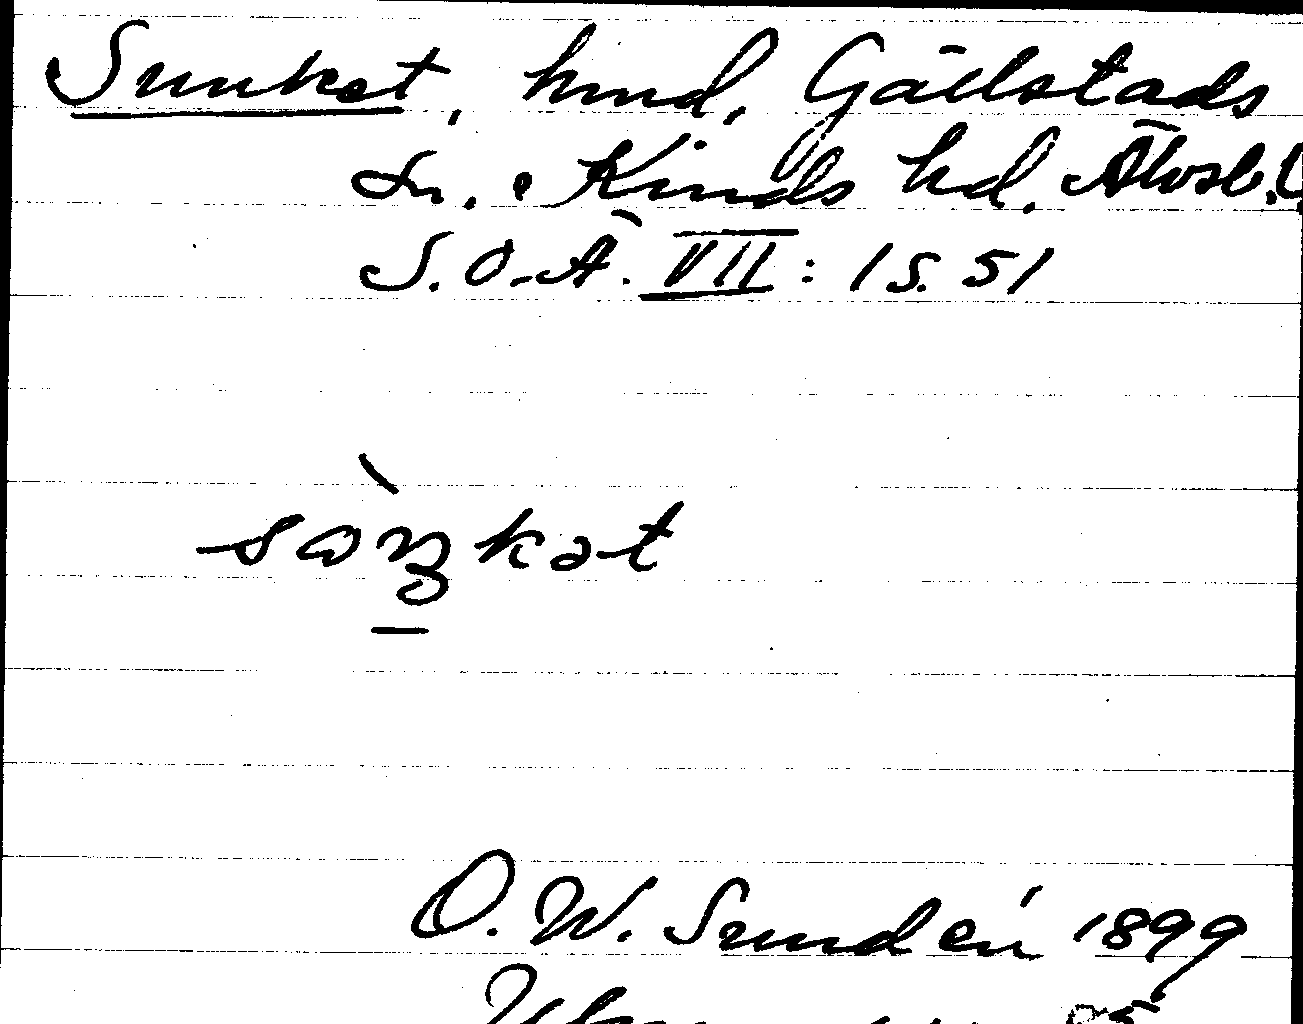 Sunket, hmd, Gällstads
sn., Kinds hd. Älvsb.
S.O.Ä. VII:1 S. 51
sàŋkət
O.W. Sundén 1899